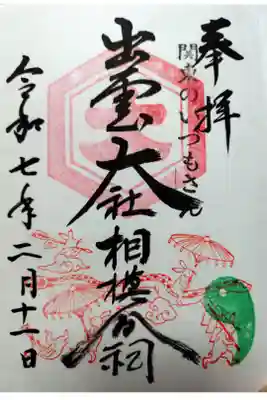 奉拝
関東のいづもさん
出雲大社相模分祠
令和七年二月十一日